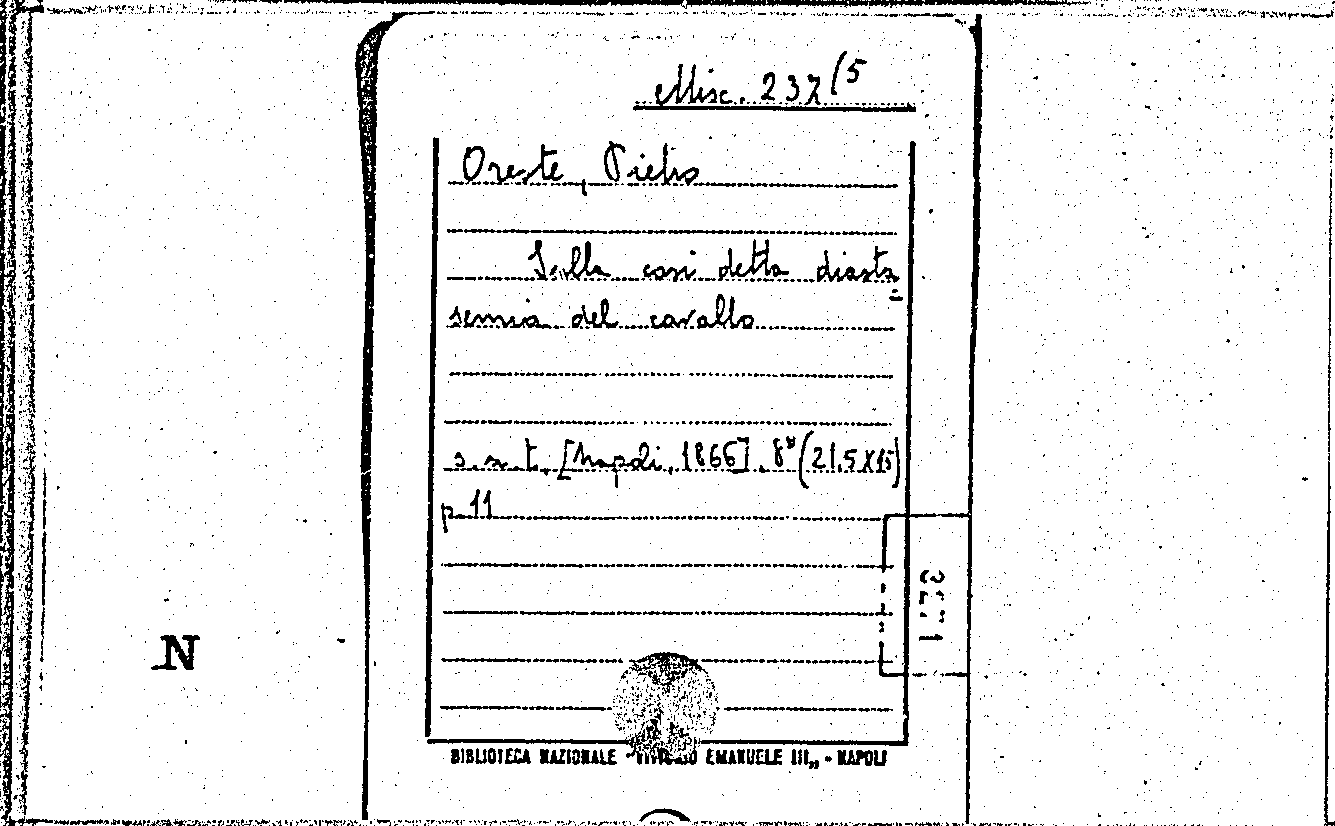 Misc. 237(5
Oreste, Pietro
Sulla così detta diasta=
semia del cavallo
s.n.t. [Napoli, 1866]. 8° (21,5X15)
p. 11
N
BIBLIOTECA NAZIONALE "VITTORIO EMANUELE III„ - NAPOLI